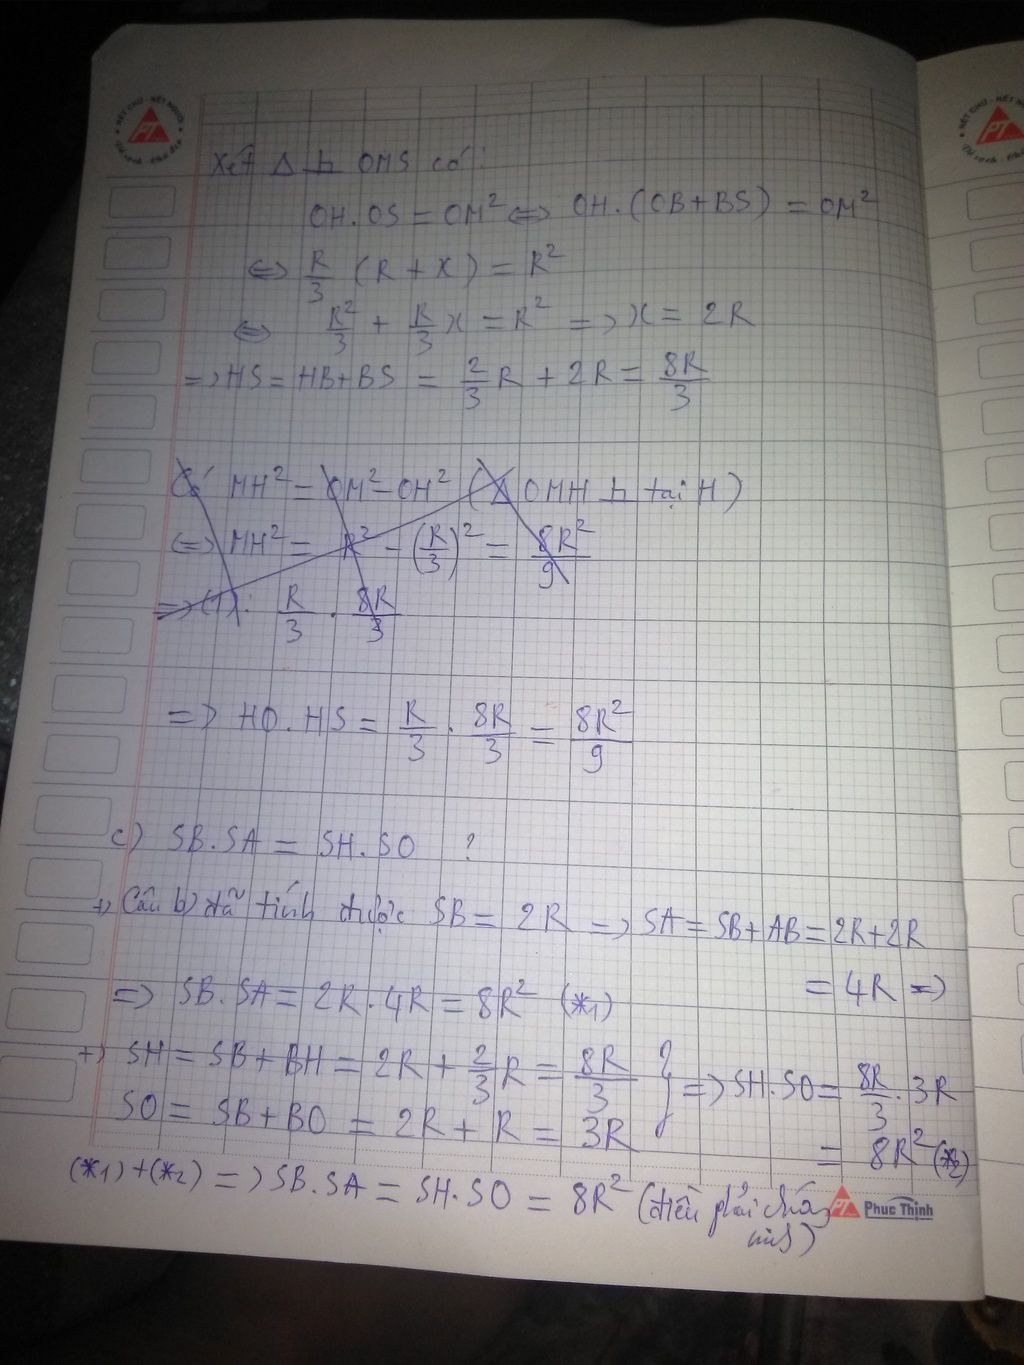 NÉT CHỮ - NẾT NGƯỜI
PT
Xét Δ ⊥ OMS có:
OH.OS = OM² ⇔ OH.(OB+BS) = OM²
⇔ R/3 (R + x) = R²
⇔ R²/3 + R/3 x = R² => x = 2R
=> HS = HB+BS = 2/3 R + 2R = 8R/3
Có MH² = OM² - OH² (Δ OMH ⊥ tại H)
⇔ MH² = R² - (R/3)² = 8R²/9
=> (1): R/3 . 8R/3
=> HO.HS = R/3 . 8R/3 = 8R²/9
c) SB.SA = SH.SO ?
+) Câu b) đã tính được SB = 2R => SA = SB+AB = 2R+2R
= 4R =>
=> SB.SA = 2R.4R = 8R² (*1)
+) SH = SB+BH = 2R + 2/3 R = 8R/3 } => SH.SO = 8R/3 . 3R
SO = SB+BO = 2R + R = 3R
= 8R² (*2)
(*1)+(*2) => SB.SA = SH.SO = 8R² (điều phải chứng
minh)
PT Phuc Thinh